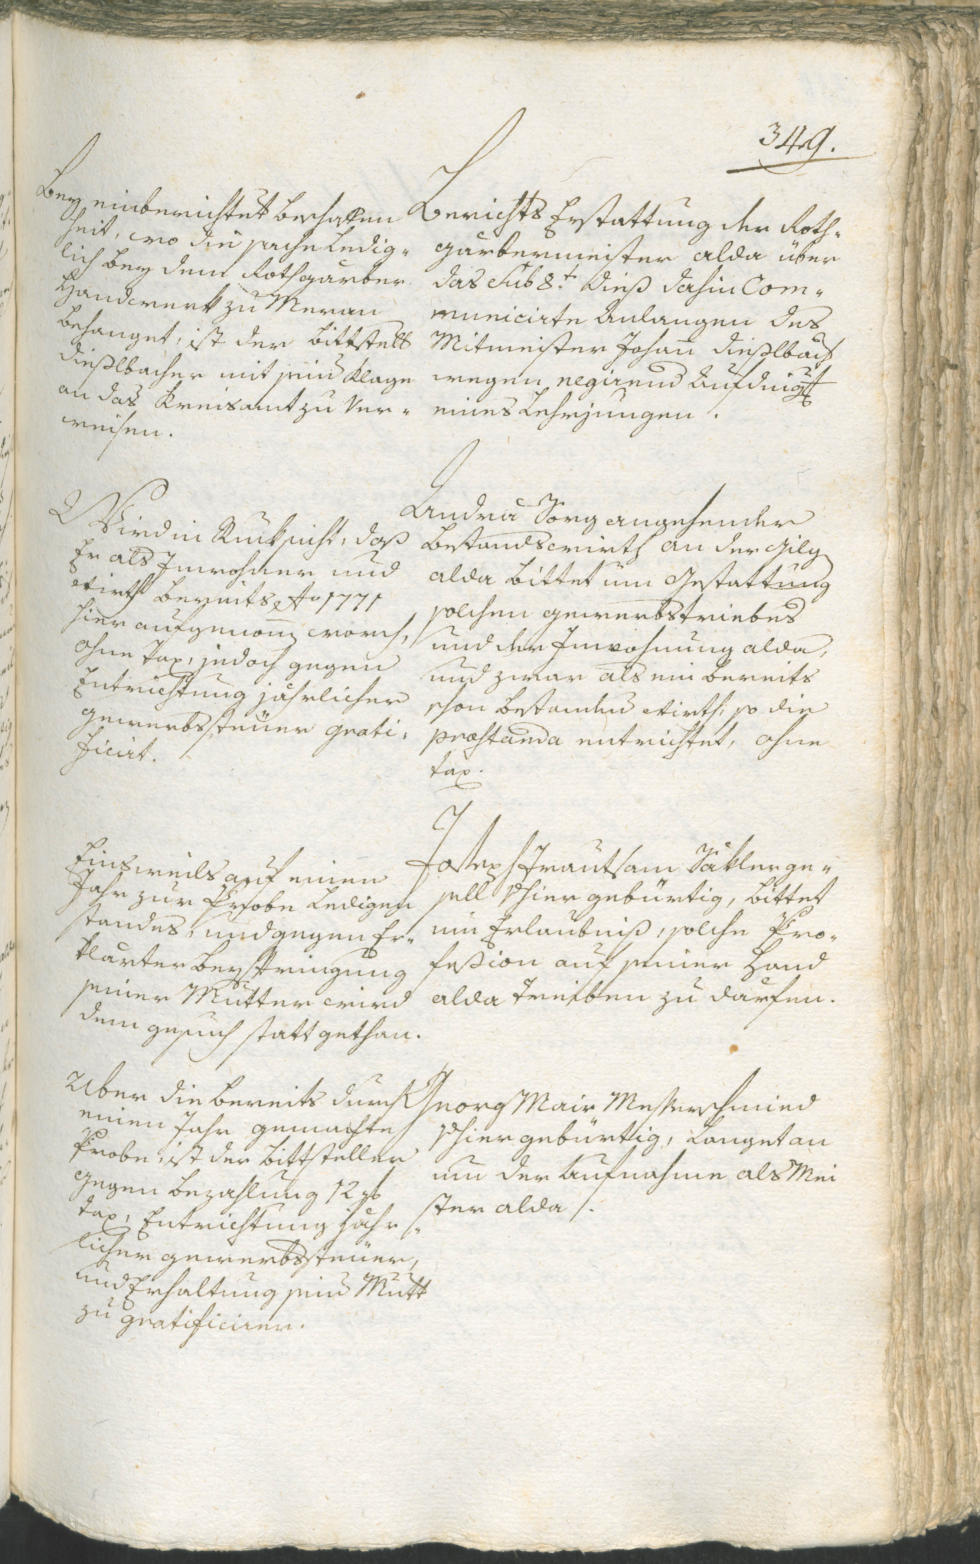 349.
Bey einberichtet beschaffen
heit, wo die sache Ledig-
lich bey dem Rothgärber
Handwerk zu Meran
behanget, ist der Bittstell
Dieslbacher mit seiner Klage
an das Kreisamt zu Ver-
weisen.
Berichts Erstattung der Roth-
gärbermeister alda über
das Sub 8t dieß dahin Com-
municirte Anlangen des
Mitmeister Johann Dießlbach
wegen negirend Aufdingg
eines Lehrjungen.
Wird in Rücksicht, daß
Er als Inwohner und
Wirth bereits Ao 1771
hier aufgenomen word,
ohne Tax, jedoch gegen
Entrichtung jährlicher
gewerbssteuer grati-
ficirt.
Andrä Sorg angehender
Bestandswirth an der Gilg
alda bittet um Gestattung
solchen gewerbstriebes
und der Inwohnung alda,
und zwar als ein bereits
schon bestanden Wirth, so die
præstanda entrichtet, ohne
tax.
Einsweils auf einen
Jahr zur Probe Ledigen
standes, und gegen Er-
klärter Beyspringung
seiner Mutter wird
dem gesuch statt gethan.
Joseph Trautsam Säklerge-
sell hier gebürtig, bittet
um Erlaubniß, solche Pro-
feßion auf seiner Hand
alda treiben zu därfen.
Uber die bereits durch
einen Jahr gemachte
Probe, ist der Bittsteller
gegen bezahlung 12 f
tax, Entrichtung jähr-
licher gewerbssteuer,
und Erhaltung seiner Mutt
zu gratificiren.
Georg Mair Messerschmied
hier gebürtig, Langet an
um der Aufnahme als Mei
ster alda.